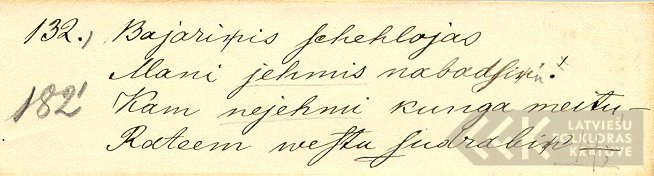 132., Bajariņis schehlojas
Mani jehmis nabadsiņu!
182! Kam nejehmi kunga meitu
Rateem westu sudrabiņ
LATVIEŠU
FOLKLORAS
KRĀTUVE